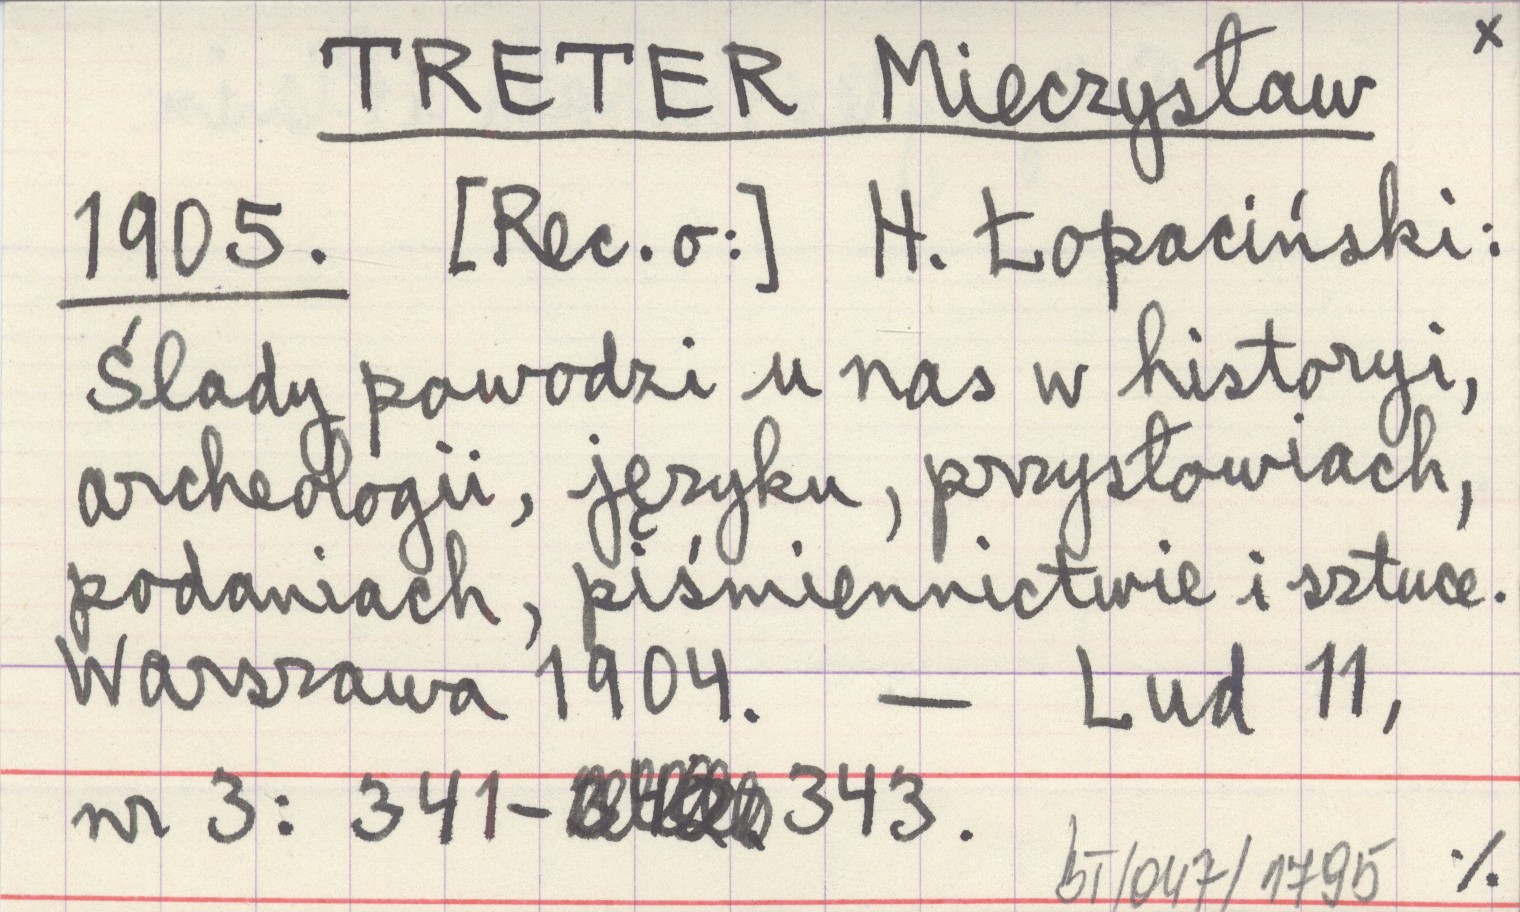 x
TRETER Mieczysław
1905. [Rec. o:] H. Łopaciński:
Ślady powodzi u nas w historyi,
archeologii, języku, przysłowiach,
podaniach, piśmiennictwie i sztuce.
Warszawa 1904. — Lud 11,
nr 3: 341- 343.
bT/047/1795 ·/.